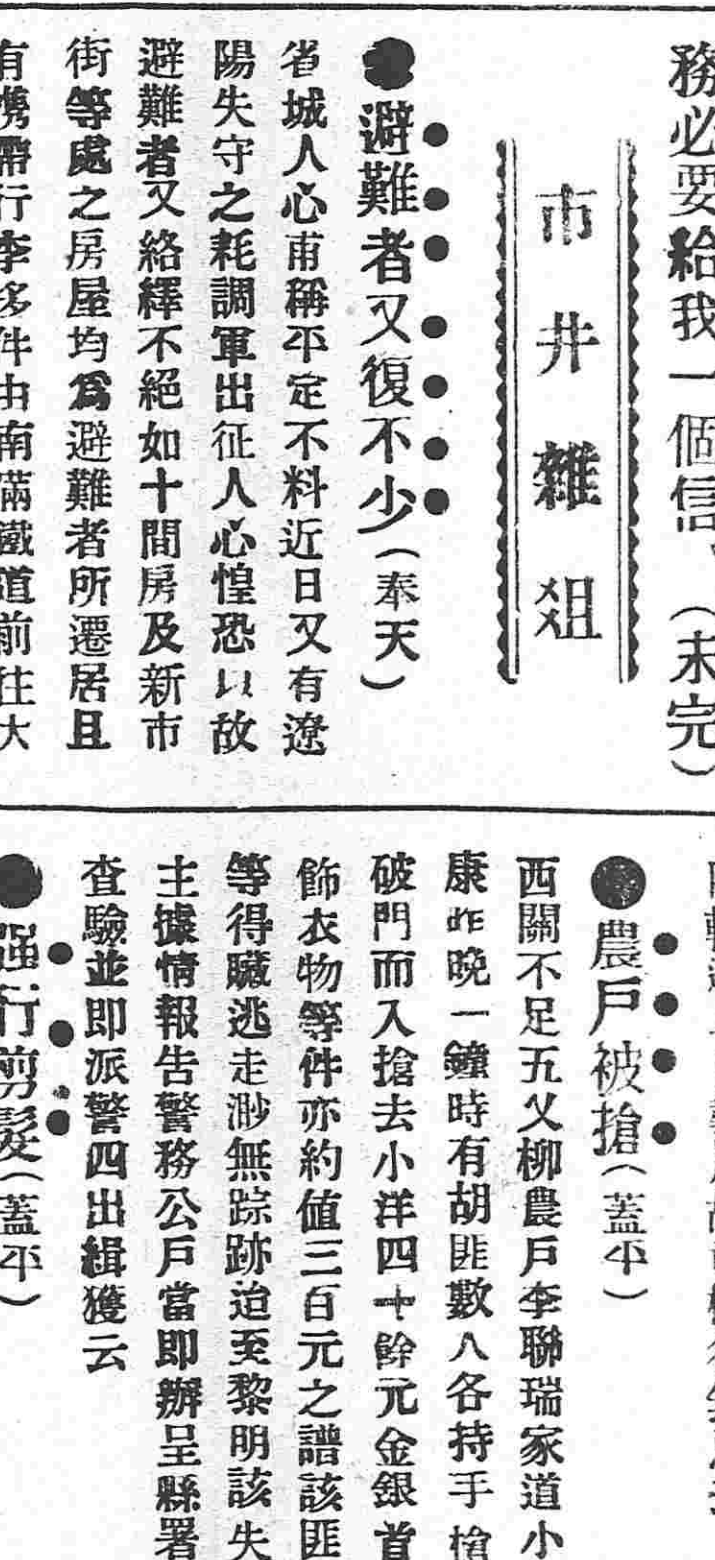 務必要給我一個信、（未完）
市井雜俎
●避難者又復不少（奉天）
省城人心甫稱平定不料近日又有遼
陽失守之耗調軍出征人心惶恐以故
避難者又絡繹不絕如十間房及新市
街等處之房屋均爲避難者所遷居且
有携帶行李多件由南滿鐵道前往大
●農戶被搶（蓋平）
西關不足五叉柳農戶李聯瑞家道小
康昨晚一鐘時有胡匪數人各持手槍
破門而入搶去小洋四十餘元金銀首
飾衣物等件亦約值三百元之譜該匪
等得贓逃走渺無踪跡迨至黎明該失
主據情報告警務公戶當即辦呈縣署
查驗並即派警四出緝獲云
●强行剪髮（蓋平）